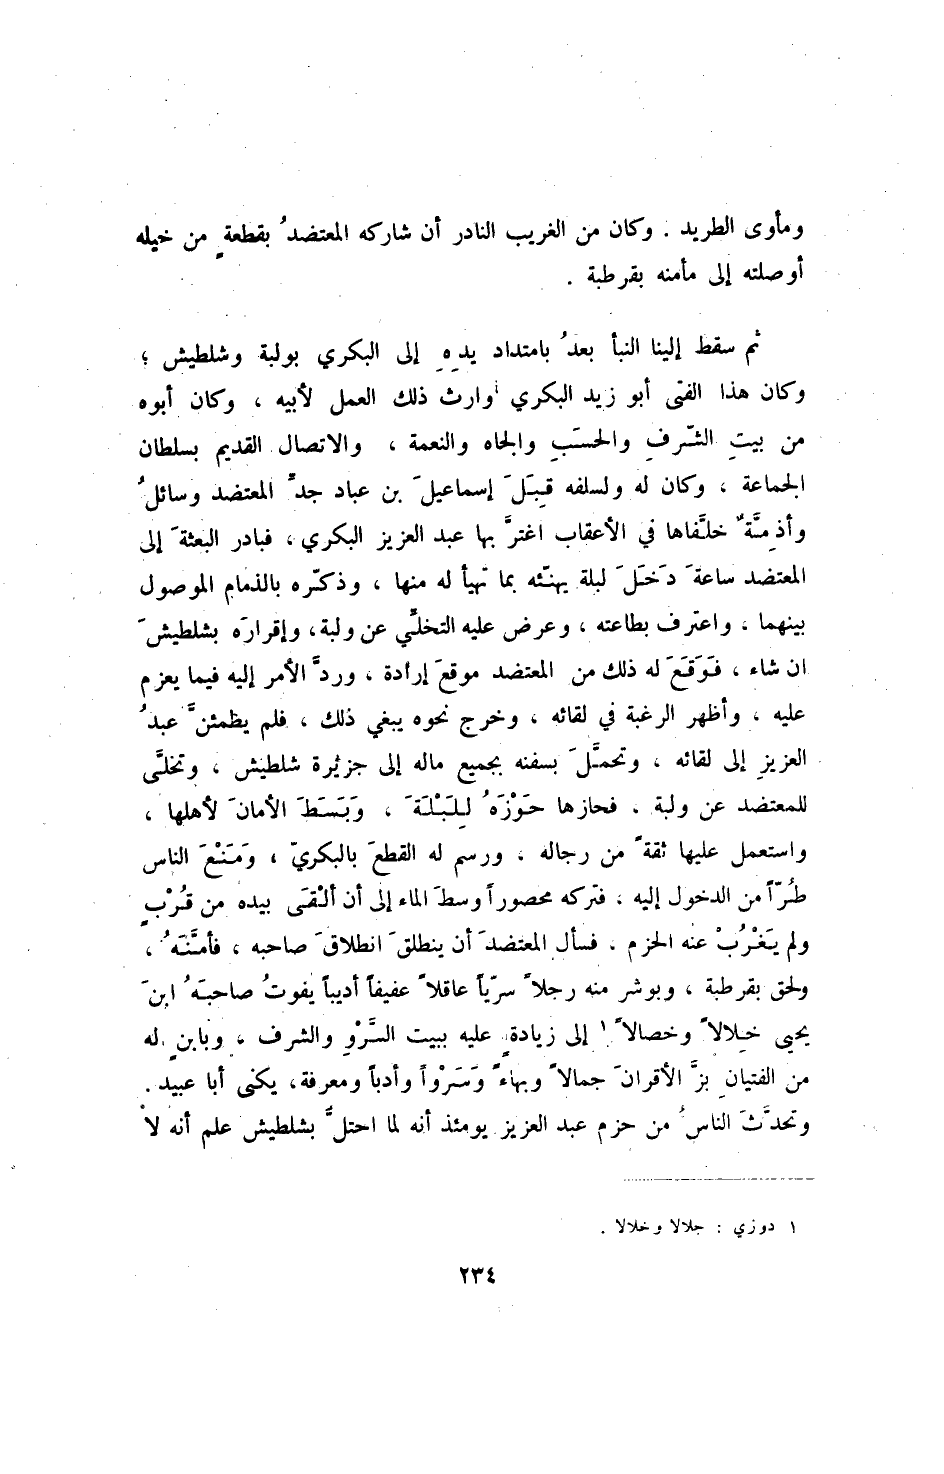 ومأوى الطريد . وكان من الغريب النادر أن شاركه المعتضدُ بقطعةٍ من خيله
أوصلته إلى مأمنه بقرطبة .
ثم سقط إلينا النبأ بعدُ بامتداد يدِهِ إلى البكري بولبة وشلطيش ؛
وكان هذا الفتى أبو زيد البكري وارث ذلك العمل لأبيه ، وكان أبوه
من بيتِ الشّرفِ والحسَبِ والجاه والنعمة ، والاتصال القديم بسلطان
الجماعة ، وكان له ولسلفه قِبَلَ إسماعيلَ بن عباد جدِّ المعتضد وسائلُ
وأذمَّةٌ خلَّفاها في الأعقاب اغترَّ بها عبد العزيز البكري ، فبادر البعثةَ إلى
المعتضد ساعةَ دَخَلَ لبلة يهنّئه بما تهيأ له منها ، وذكّره بالذمام الموصول
بينهما ، واعترف بطاعته ، وعرض عليه التخلّي عن ولبة ، وإقرارَه بشلطيشَ
ان شاء ، فَوَقَعَ له ذلك من المعتضد موقعَ إرادة ، وردَّ الأمر إليه فيما يعزم
عليه ، وأظهر الرغبة في لقائه ، وخرج نحوه يبغي ذلك ، فلم يطمئنَّ عبدُ
العزيزِ إلى لقائه ، وتحمَّلَ بسفنه بجميع ماله إلى جزيرة شلطيش ، وتخلَّى
للمعتضد عن ولبة . فحازها حَوْزَهُ لِلَبْلَةَ ، وَبَسَطَ الأمانَ لأهلها ،
واستعمل عليها ثقةً من رجاله ، ورسم له القطعَ بالبكريّ ، وَمَنْعَ الناس
طُرّاً من الدخول إليه ، فتركه محصوراً وسطَ الماء إلى أن ألْقَى بيده من قُرْبٍ
ولم يَغْرُبْ عنه الحزم . فسأل المعتضدَ أن ينطلقَ انطلاقَ صاحبه ، فأمَّنَهُ ،
ولحق بقرطبة ، وبوشر منه رجلاً سرّياً عاقلاً عفيفاً أديباً يفوتُ صاحبَهُ ابنَ
يحيى خِلالاً وخصالاً ١ إلى زيادةٍ عليه ببيت السَّرْوِ والشرف ، وبابنٍ له
من الفتيان بزَّ الأقرانَ جمالاً وبهاءً وَسَرْواً وأدباً ومعرفة ، يكنى أبا عبيد .
وتحدَّثَ الناسُ من حزم عبد العزيز يومئذ أنه لما احتلَّ بشلطيش علم أنه لا
١ دوزي : جلالا وخلالا .
٢٣٤